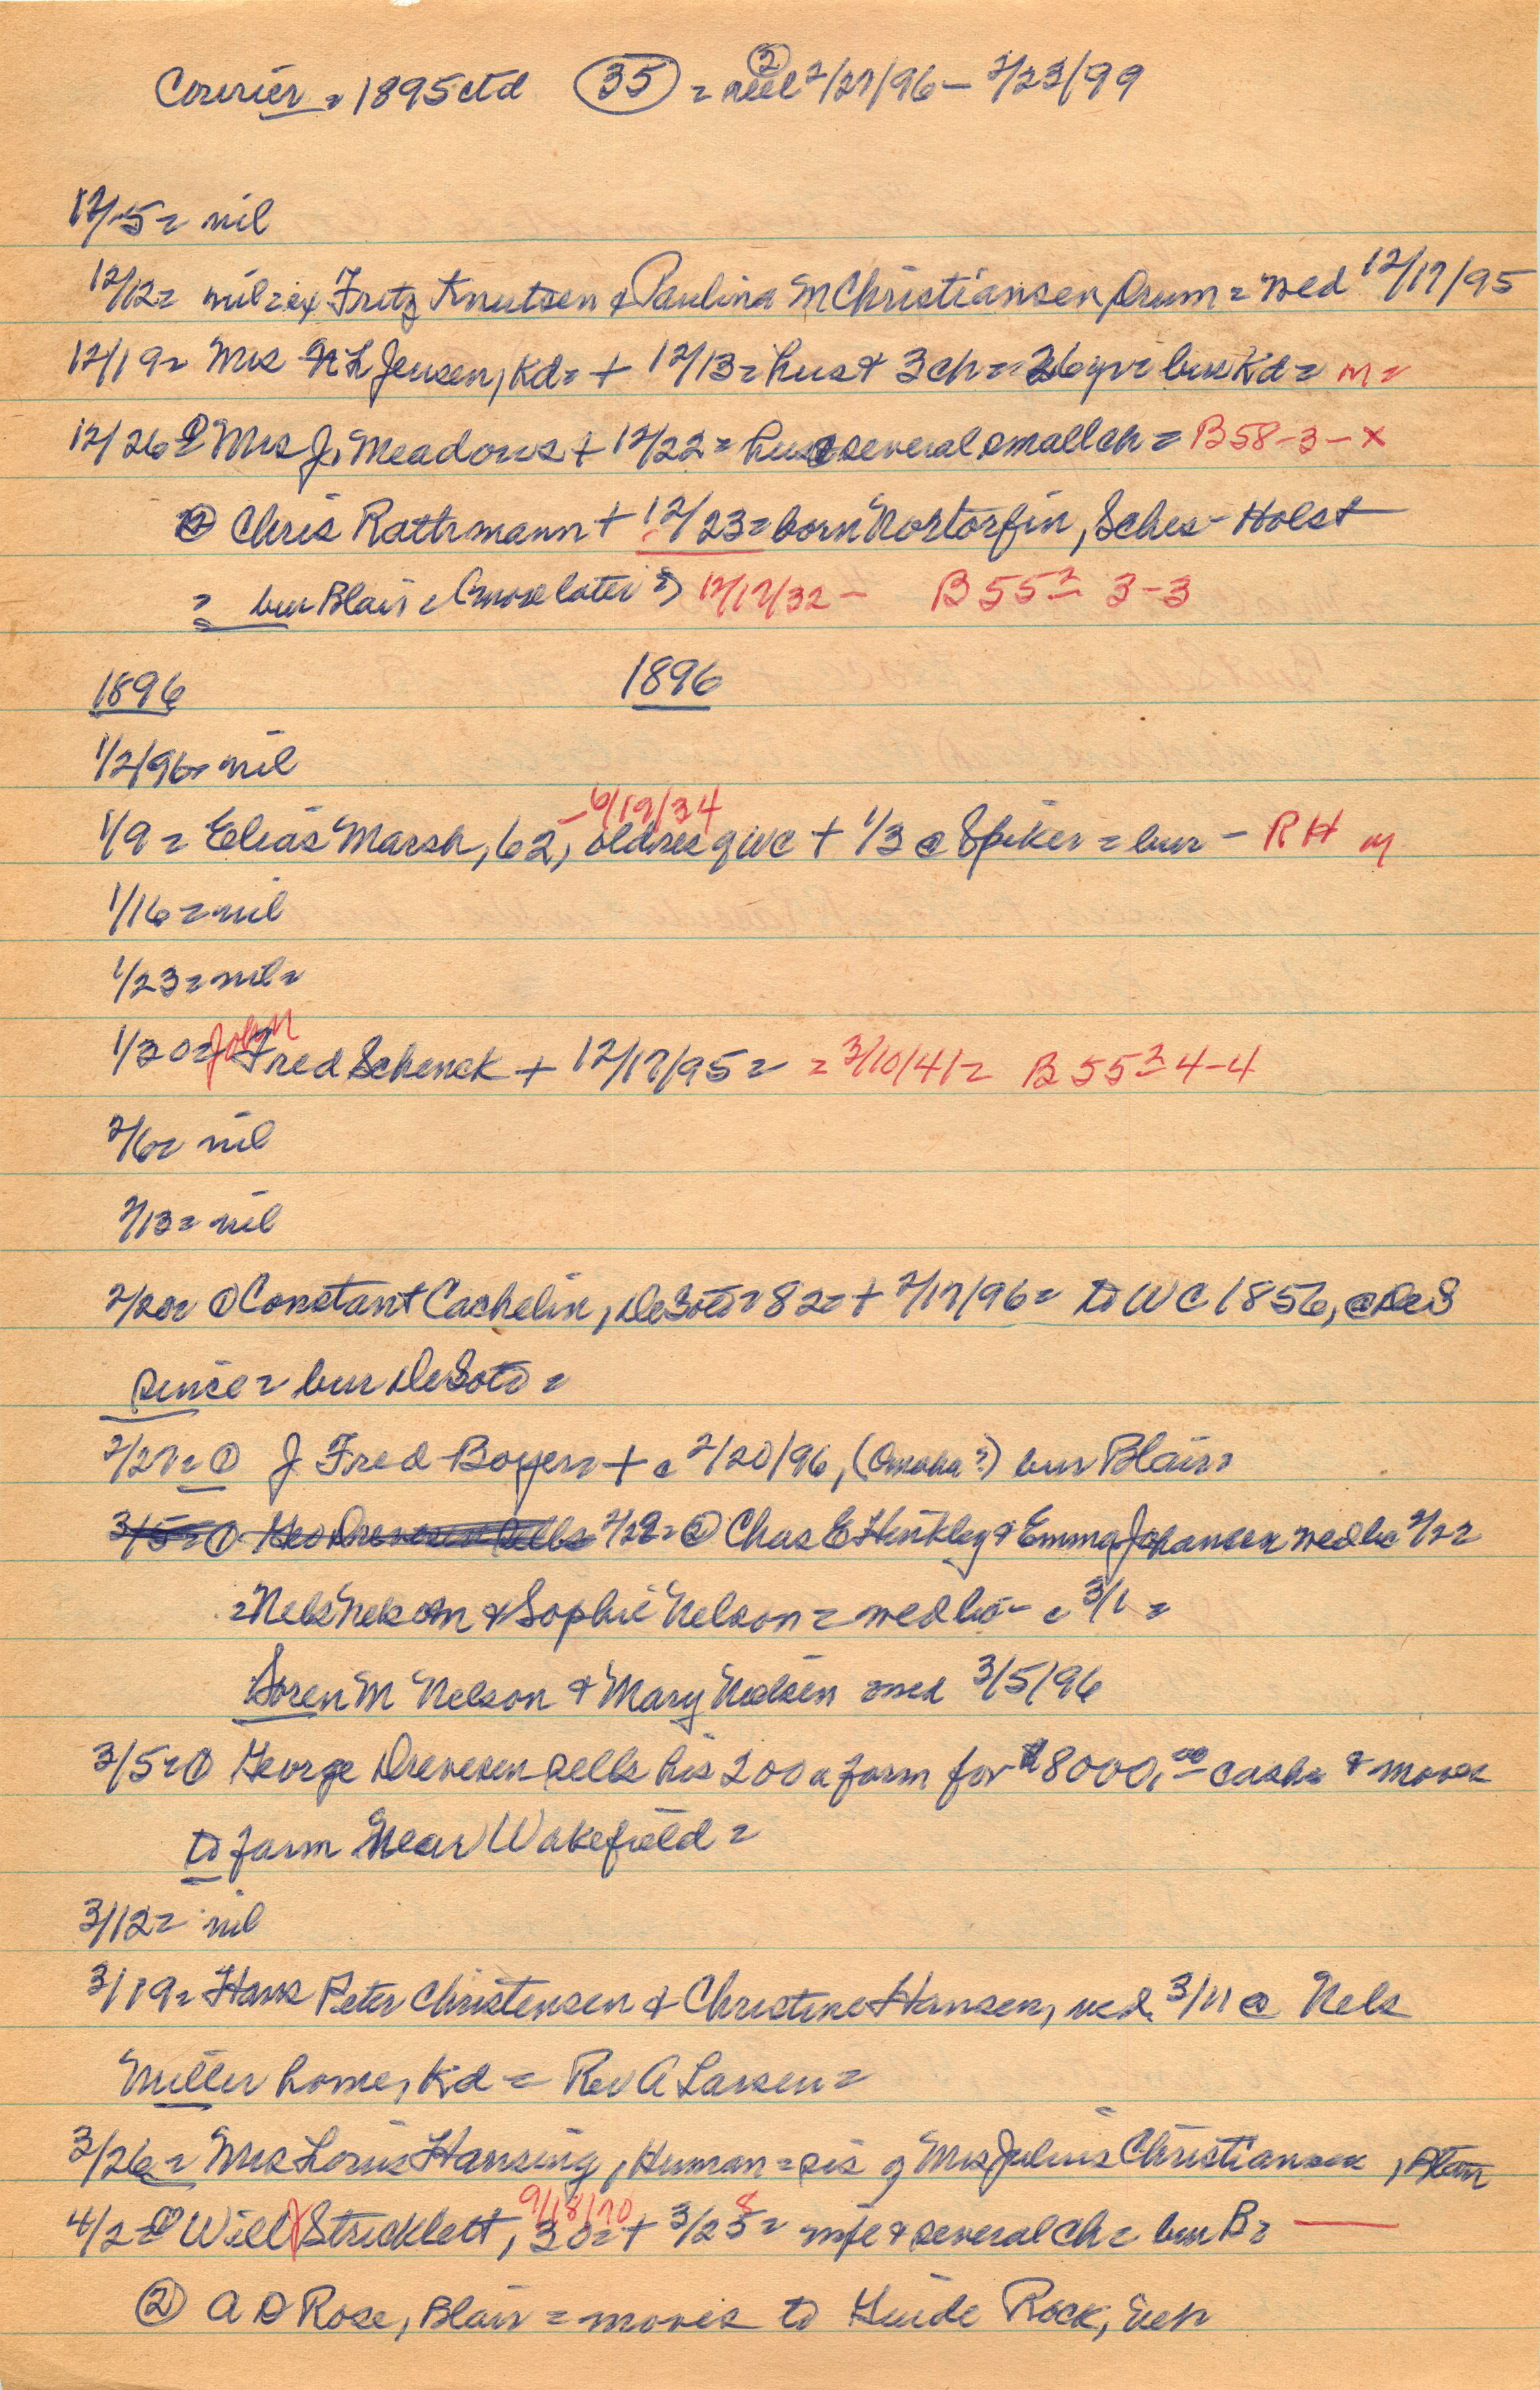 Courier = 1895 ctd (35) = reel (2) 2/27/96 – 2/23/99
12/5 = nil
12/12 = nil = ex Fritz Knutsen & Paulina M Christiansen, Orum = wed 12/17/95
12/19 = Mrs N L Jensen, Kd = + 12/13 = hus & 3 ch = 26 yr = bur Kd = m =
12/26 Mrs J. Meadows + 12/22 = hus & several small ch = B58-3-x
② Chris Rathmann + 12/23 = born Nortorfin, Schles-Holst
= bur Blair (more later =) 12/17/32 – B 55 2 3-3
1896 1896
1/2/96 = nil
– 6/19/34
1/9 = Elias Marsh, 62, old res of WC + 1/3 @ Spiker = bur – RH m
1/16 = nil
1/23 = nil =
John
1/30 = Fred Schenck + 12/17/95 = = 3/10/41 = B 55 2 4-4
2/6 = nil
2/13 = nil
2/20 = ① Constant Cachelin, DeSoto = 82 = + 2/17/96 = to WC 1856, @ DeS
since = bur DeSoto =
2/27 = ① J Fred Boyer = + c 2/20/96, (Omaha?) bur Blair =
3/5 = ① Geo Drevesen sells 2/22 = ② Chas E Hinkley & Emma Johansen wed lic 2/22
= Nels Nelson & Sophie Nelson = wed lic – c 3/1 =
Soren M Nelson & Mary Nielsen wed 3/5/96
3/5 = ① George Drevesen sells his 200 a farm for $8000.00 cash = & moves
to farm near Wakefield =
3/12 = nil
3/19 = Hans Peter Christensen & Christine Hansen, wed. 3/11 @ Nels
Miller home, Kd = Rev A Larsen =
3/26 = Mrs Louis Hansing, Human = sis of Mrs Julius Christiansen, Blair
9/18/70 8
4/2 = ① Will Stricklett, 30 = + 3/25 = wife & several ch = bur B =
② A D Rose, Blair = moves to Guide Rock, Neb